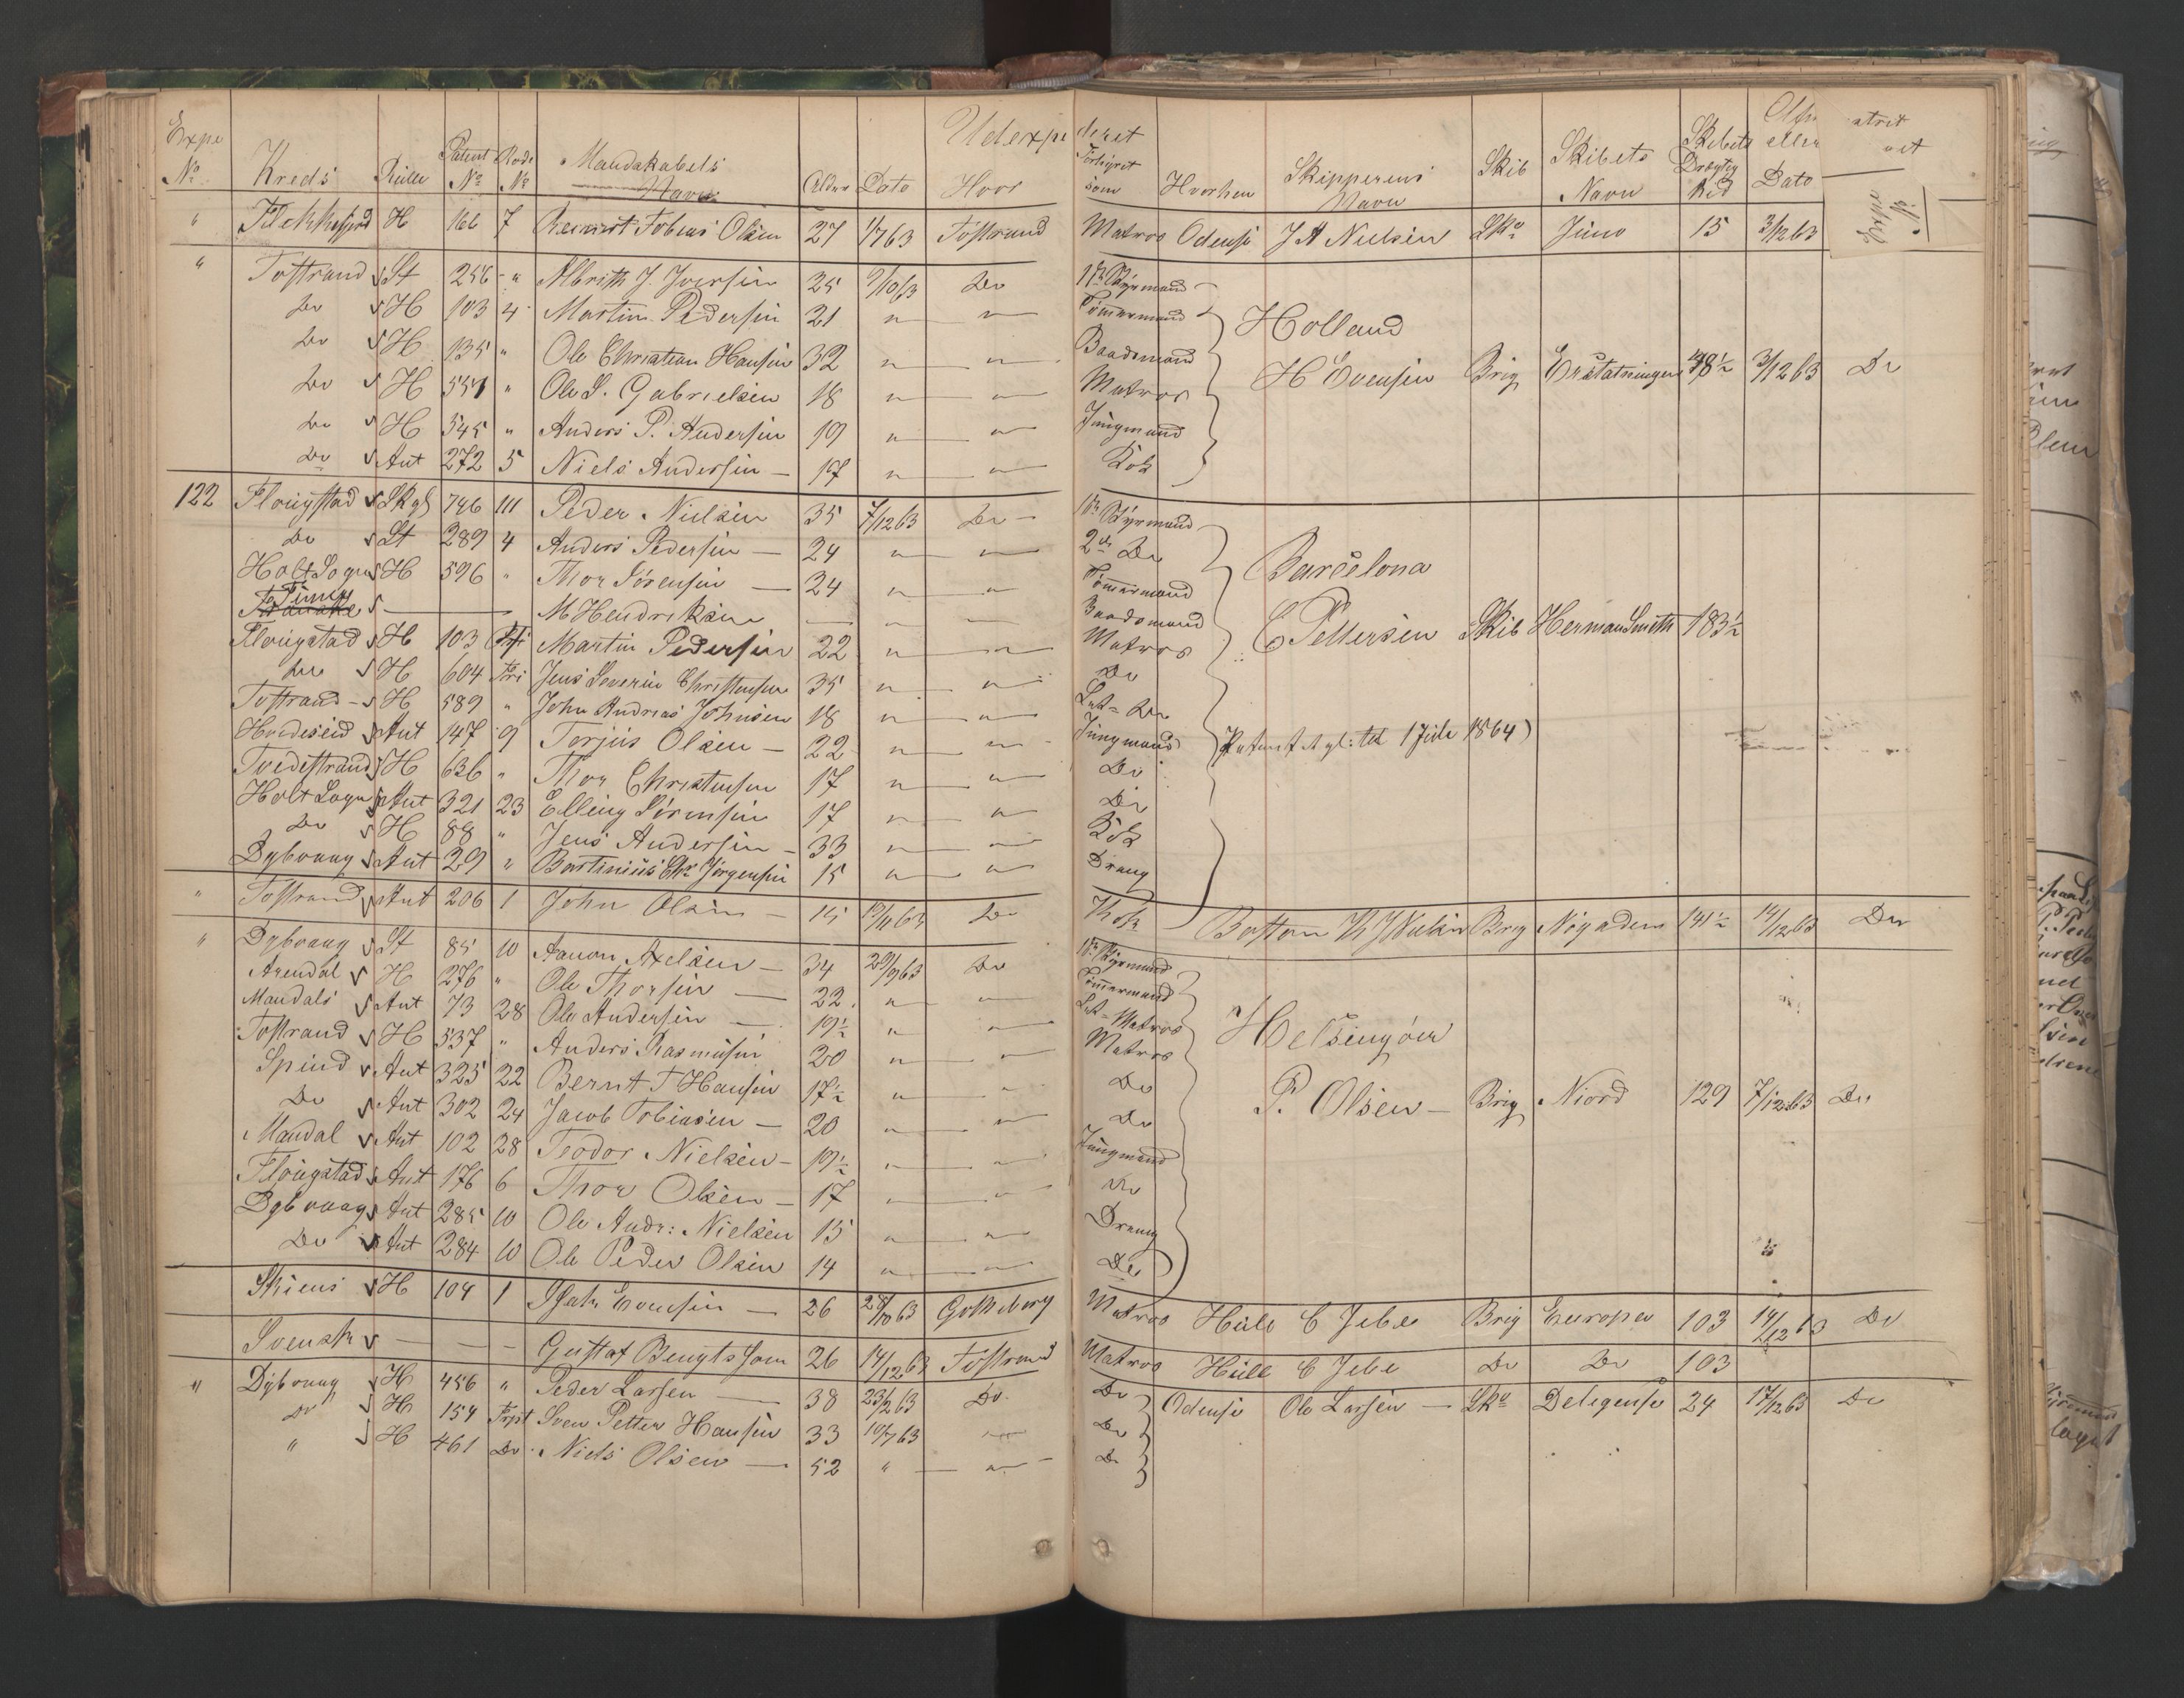 Expe Udexpe deret
No Kreds Rulle Patent No Rode No Mandskabets Navn Alder Dato Hvor Forhyret som Hvorhen Skipperens Navn Skib Skibets Navn Skibets Drægtighed Dato
" Flekkefjord H 166 7 Reinert Tobias Olsen 27 1/7 63 Tostrand Matros Odense J A Nielsen Sko Juno 15 3/12 63 Expe No
" Tostrand St 256 " Albrith J. Iversen 25 9/10 63 Do 1ste Styrmand
Do H 103 4 Martin Pedersen 21 " " Tømmermand Holland
Do H 135 " Ole Christian Hansen 32 " " Baadsmand
Do H 557 " Ole S. Gabrielsen 18 " " Matros H Evensen Brig Erstatningen 98½ 3/12 63 Do
Do H 545 " Anders P. Andersen 19 " " Jungmand
Do Ant 272 5 Niels Andersen — 17 " " Kok
122 Flougstad Skgb 746 111 Peder Nielsen 35 7/12 63 Do 1ste Styrmand
Do St 289 4 Anders Pedersen — 24 " " 2den Do
Holt Sogn H 596 " Thor Sørensen — 24 " " Tømmermand Barcelona
M Hendriksen — " " Baadsmand
Flougstad H 103 Martin Pedersen 22 " " Matros E Pettersen Skib Herman Smith 183½
Do H 604 Jens Severin Christensen 35 " " Do
Tostrand H 589 " John Andreas Johnsen 18 " " Let- Do
Hvideseid Ant 147 9 Torjus Olsen — 22 " " Jungmand (Patent til 1 Juli 1864)
Tvedestrand H 636 " Thor Christensen 17 " " Do
Holt Sogn Ant 321 23 Elling Sørensen 17 " " Do
Do H 88 " Jens Andersen — 33 " " Kok
Dybvaag Ant 29 " Bartinius Chr Jørgensen 15 " " Dreng
" Tostrand Ant 206 1 John Olsen — 15 63 Do Kok Boston Brig 141½ 14/12 63 Do
" Dybvaag St 85 10 Aanon Axelsen — 34 29/9 63 Do 1ste Styrmand
Arendal H 276 " Ole Thorsen — 22 " " Tømmermand
Mandals Ant 73 28 Ole Andersen — 19½ " " Let- Matros Helsingøer
Tostrand H 537 " Anders Rasmusen 20 " " Matros
Spind Ant 325 22 Bernt T Hansen 17½ " " Do
Do Ant 302 24 Jacob Tobiasen — 20 " " Do P. Olsen — Brig Niord 129 7/12 63 Do
Mandal Ant 102 28 Teodor Nielsen — 19½ " " Jungmand
Flougstad Ant 176 6 Thor Olsen — 17 " " Do
Dybvaag Ant 285 10 Ole Andr: Nielsen 15 " " Dreng
Do Ant 284 10 Ole Peder Olsen 14 " " Do
Skiens H 104 1 Isak Evensen — 26 28/10 63 Gotheborg Matros Hull C Jebe Brig Europa 103 14/12 63 Do
Svensk — — Gustaf Bengtsson 26 14/12 63 Tostrand Matros Hull C Jebe Do Do 103
" Dybvaag H 456 " Peder Larsen — 38 23/2 63 Do Do Odense Ole Larsen — Sko Deligense 24 17/12 63 Do
Do H 154 Sven Petter Hansen 33 10/7 63 " Do
" H 461 Do Niels Olsen — 52 " " Do